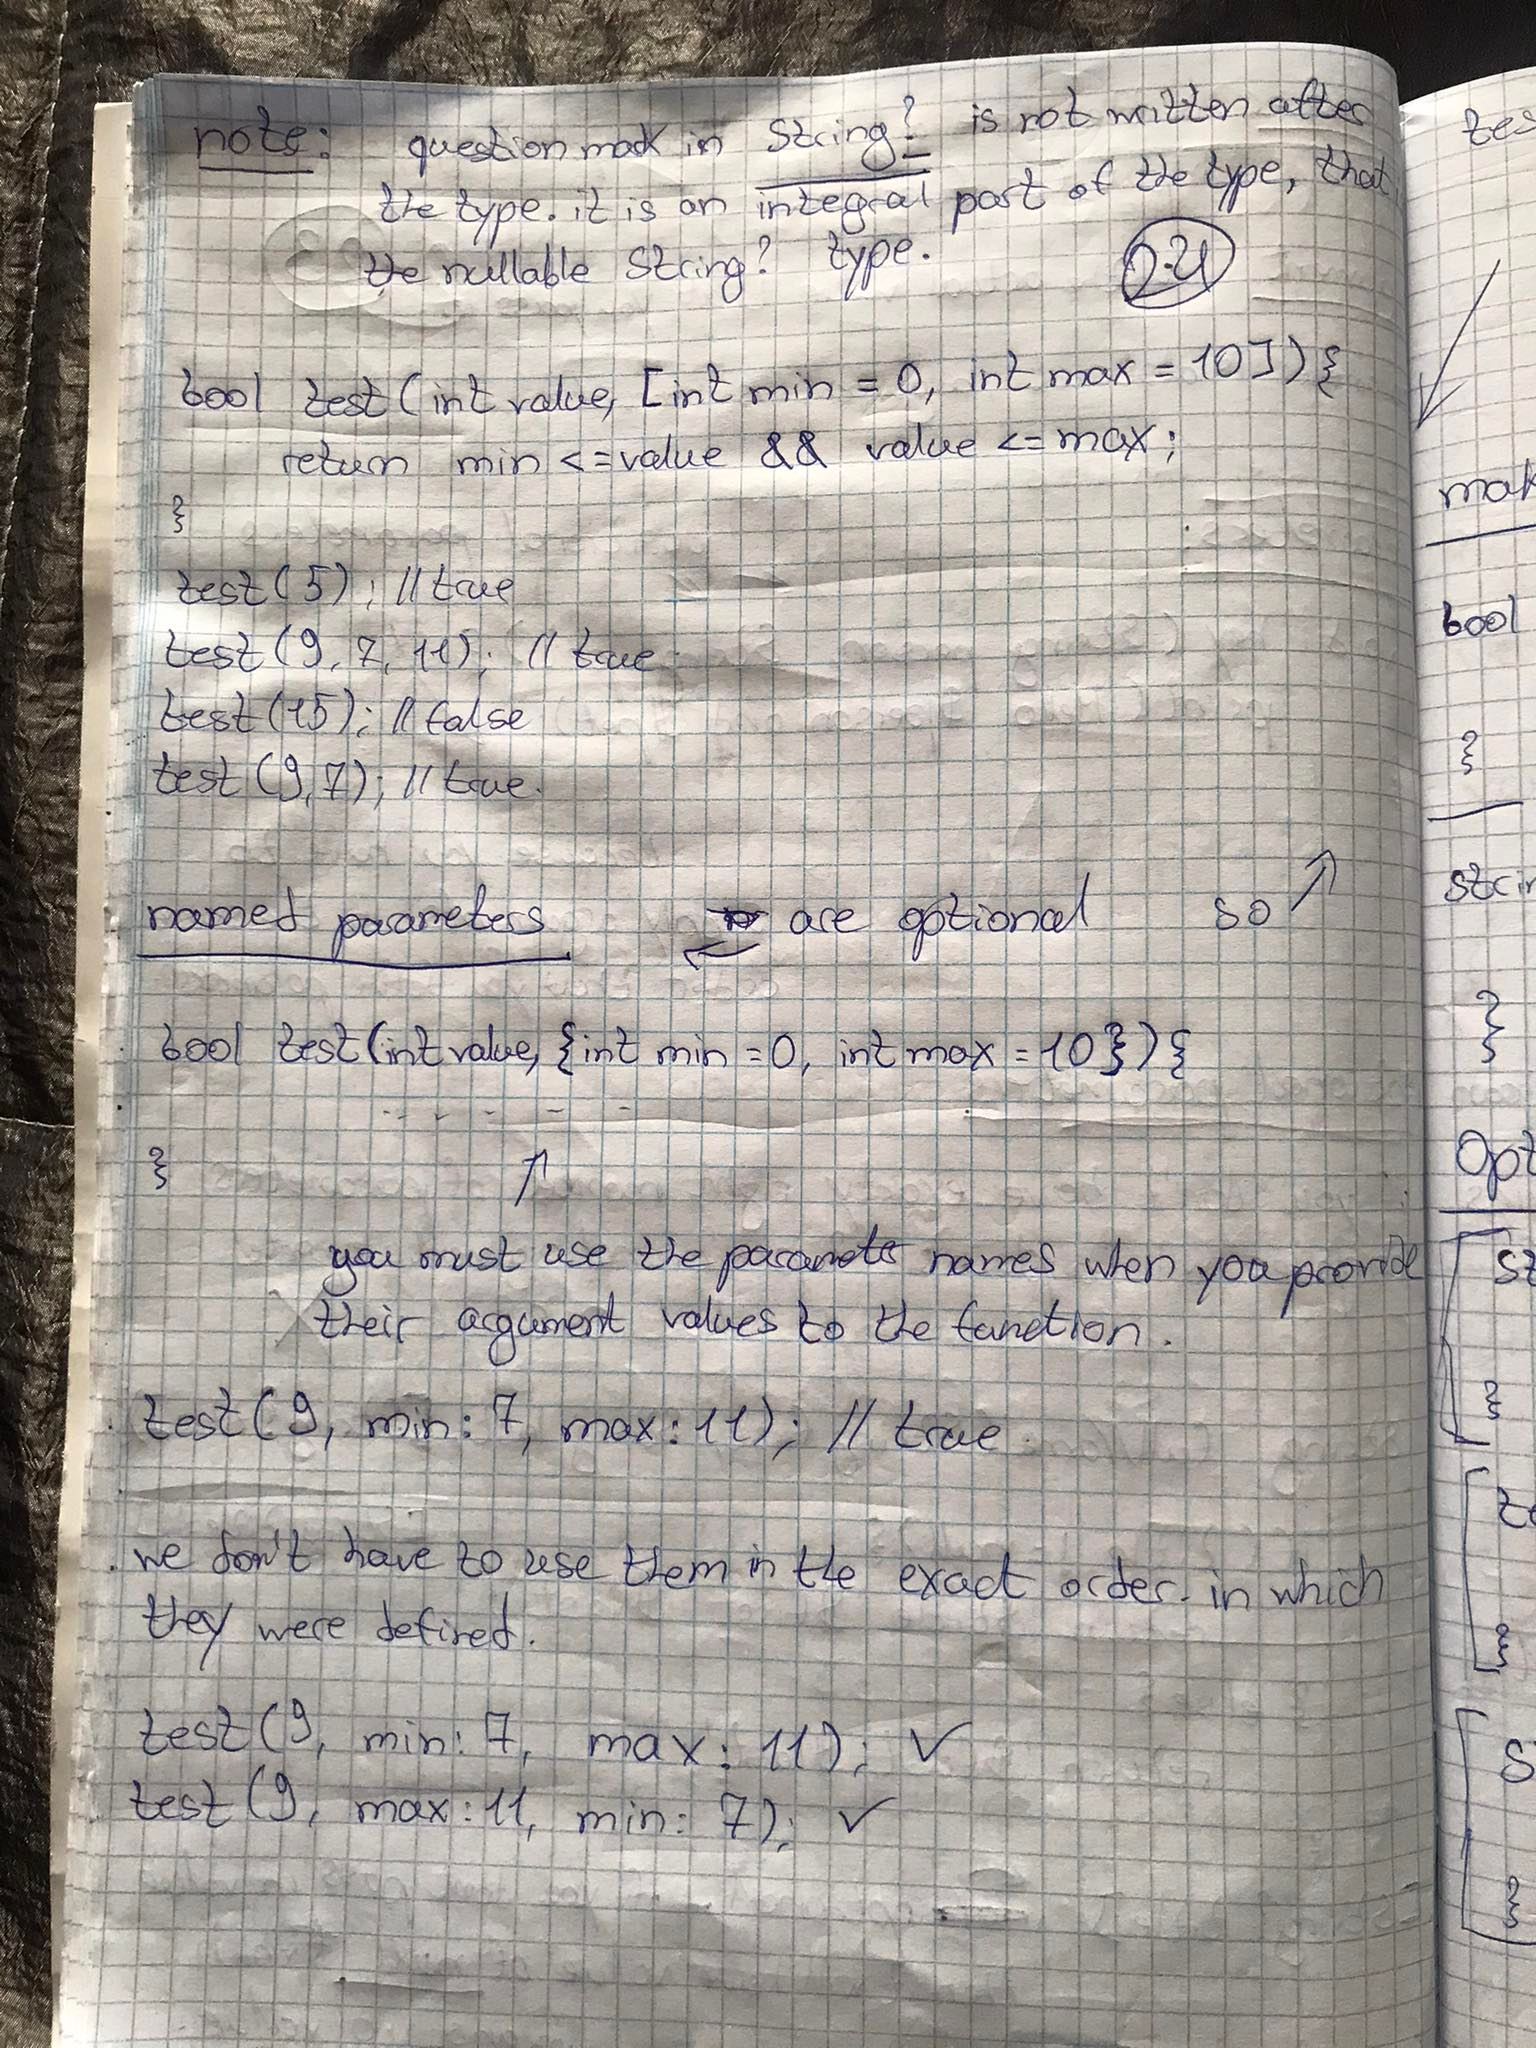 note: question mark in String? is not written after
the type. it is an integral part of the type, that
the nullable String? type.
bool test(int value, [int min = 0, int max = 10]) {
return min <= value && value <= max;
}
test(5); // true
test(9, 7, 11); // true
test(15); // false
test(9, 7); // true.
named parameters ← are optional so ↗
bool test(int value, {int min = 0, int max = 10}) {
- - - - - -
}
↑
you must use the parameter names when you provide
their argument values to the function.
test(9, min: 7, max: 11); // true
we don't have to use them in the exact order. in which
they were defined.
test(9, min: 7, max: 11); ✓
test(9, max: 11, min: 7); ✓
tes
mak
bool
}
strin
}
Opt
st
}
te
}
S
}